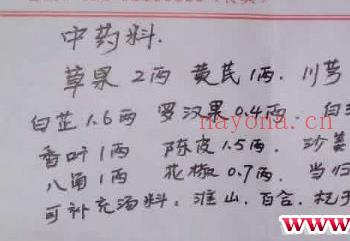 中药料.
草果 2两 黄芪 1两. 川芎
白芷 1.6两 罗汉果 0.4两. 白
香叶 1两 陈皮 1.5两. 沙姜
八角 1两 花椒 0.7两. 当归
可补充汤料. 淮山. 百合. 杞子
nayona.cn
www